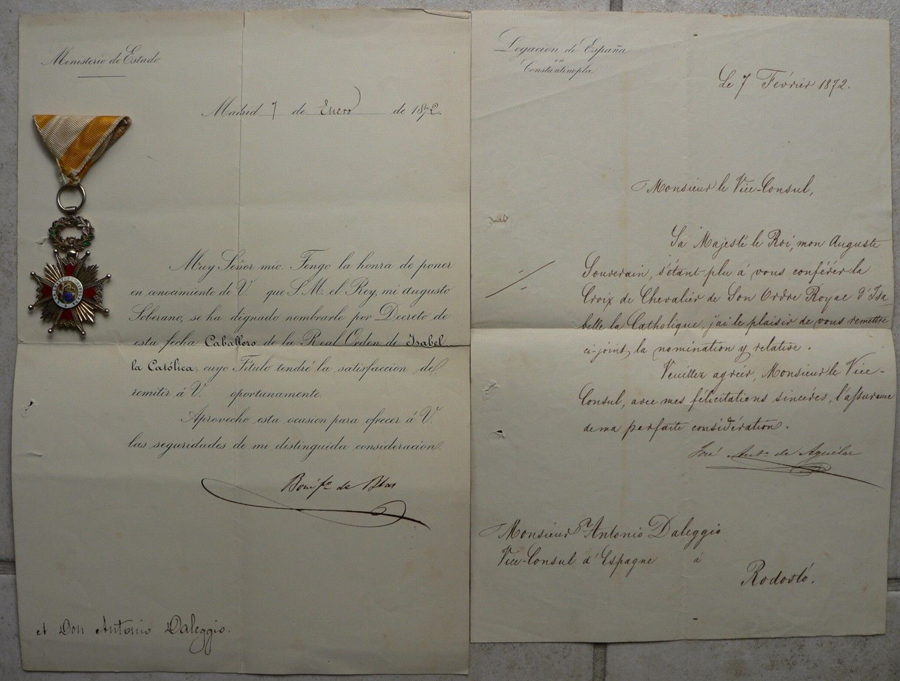 Ministerio de Estado
Madrid 7 de Enero de 1872.
Muy Señor mio: Tengo la honra de poner
en conocimiento de V. que S. M. el Rey, mi augusto
Soberano, se ha dignado nombrarle por Decreto de
esta fecha Caballero de la Real Orden de Isabel
la Católica, cuyo Título tendré la satisfaccion de
remitir á V. oportunamente.
Aprovecho esta ocasion para ofrecer á V.
las seguridades de mi distinguida consideracion.
Bonif.º de Blas
A Don Antonio Daleggio.
Legacion de España
en
Constantinopla
Le 7 Février 1872.
Monsieur le Vice-Consul,
Sa Majesté le Roi, mon Auguste
Souverain, s'étant plu à vous conférer la
Croix de Chevalier de Son Ordre Royal d'Isa
belle la Catholique, j'ai le plaisir de vous remettre
ci-joint, la nomination y relative.
Veuillez agréer, Monsieur le Vice-
Consul, avec mes félicitations sincères, l'assurance
de ma parfaite considération.
José Ant.º de Aguilar
Monsieur Antonio Daleggio
Vice-Consul d'Espagne à
Rodosto.